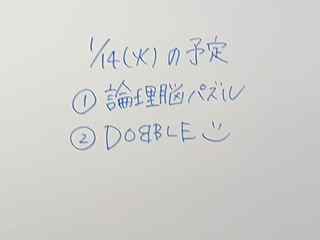 1/14(火)の予定
① 論理脳パズル
② DOBBLE